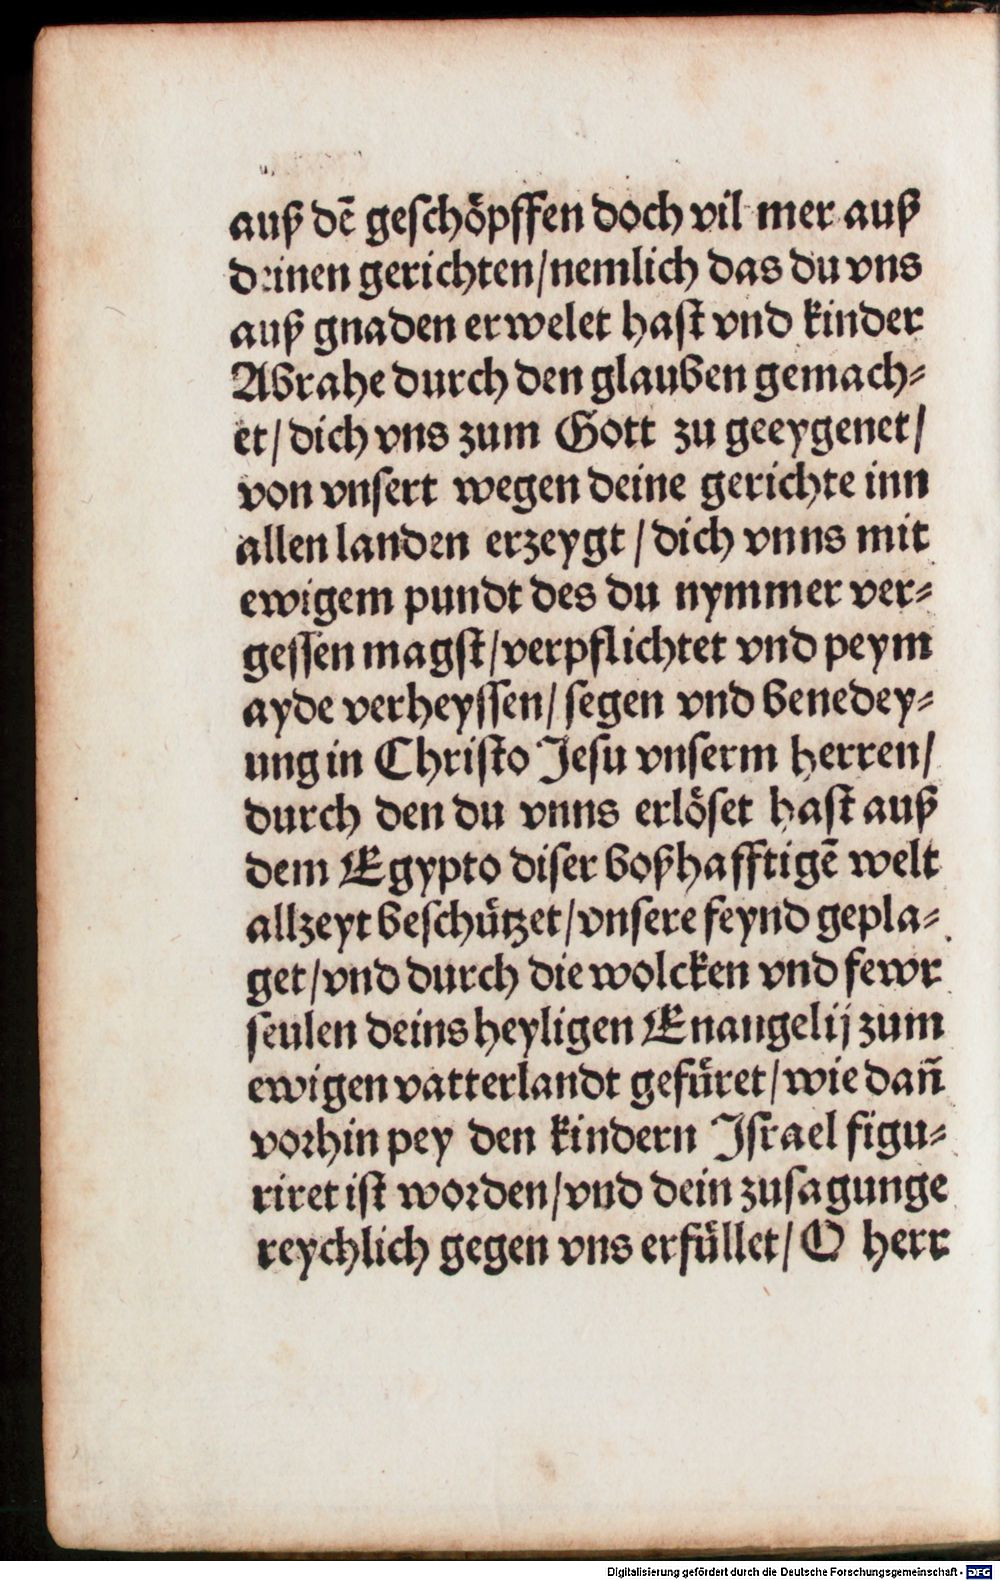 auß dē geschöpffen doch vil mer auß
deinen gerichten/nemlich das du vns
auß gnaden erwelet hast vnd kinder
Abrahe durch den glauben gemach⸗
et/dich vns zum Gott zu geeygenet/
von vnsert wegen deine gerichte inn
allen landen erzeygt/dich vnns mit
ewigem pundt des du nymmer ver⸗
gessen magst/verpflichtet vnd peym
ayde verheyssen/segen vnd benedey⸗
ung in Christo Jesu vnserm herren/
durch den du vnns erlöset hast auß
dem Egypto diser boßhafftigē welt
allzeyt beschützet/vnsere feynd gepla⸗
get/vnd durch die wolcken vnd fewr
seulen deins heyligen Enangelij zum
ewigen vatterlandt gefüret/wie dañ
vorhin pey den kindern Israel figu⸗
riret ist worden/vnd dein zusagunge
reychlich gegen vns erfüllet/O herr
Digitalisierung gefördert durch die Deutsche Forschungsgemeinschaft - DFG